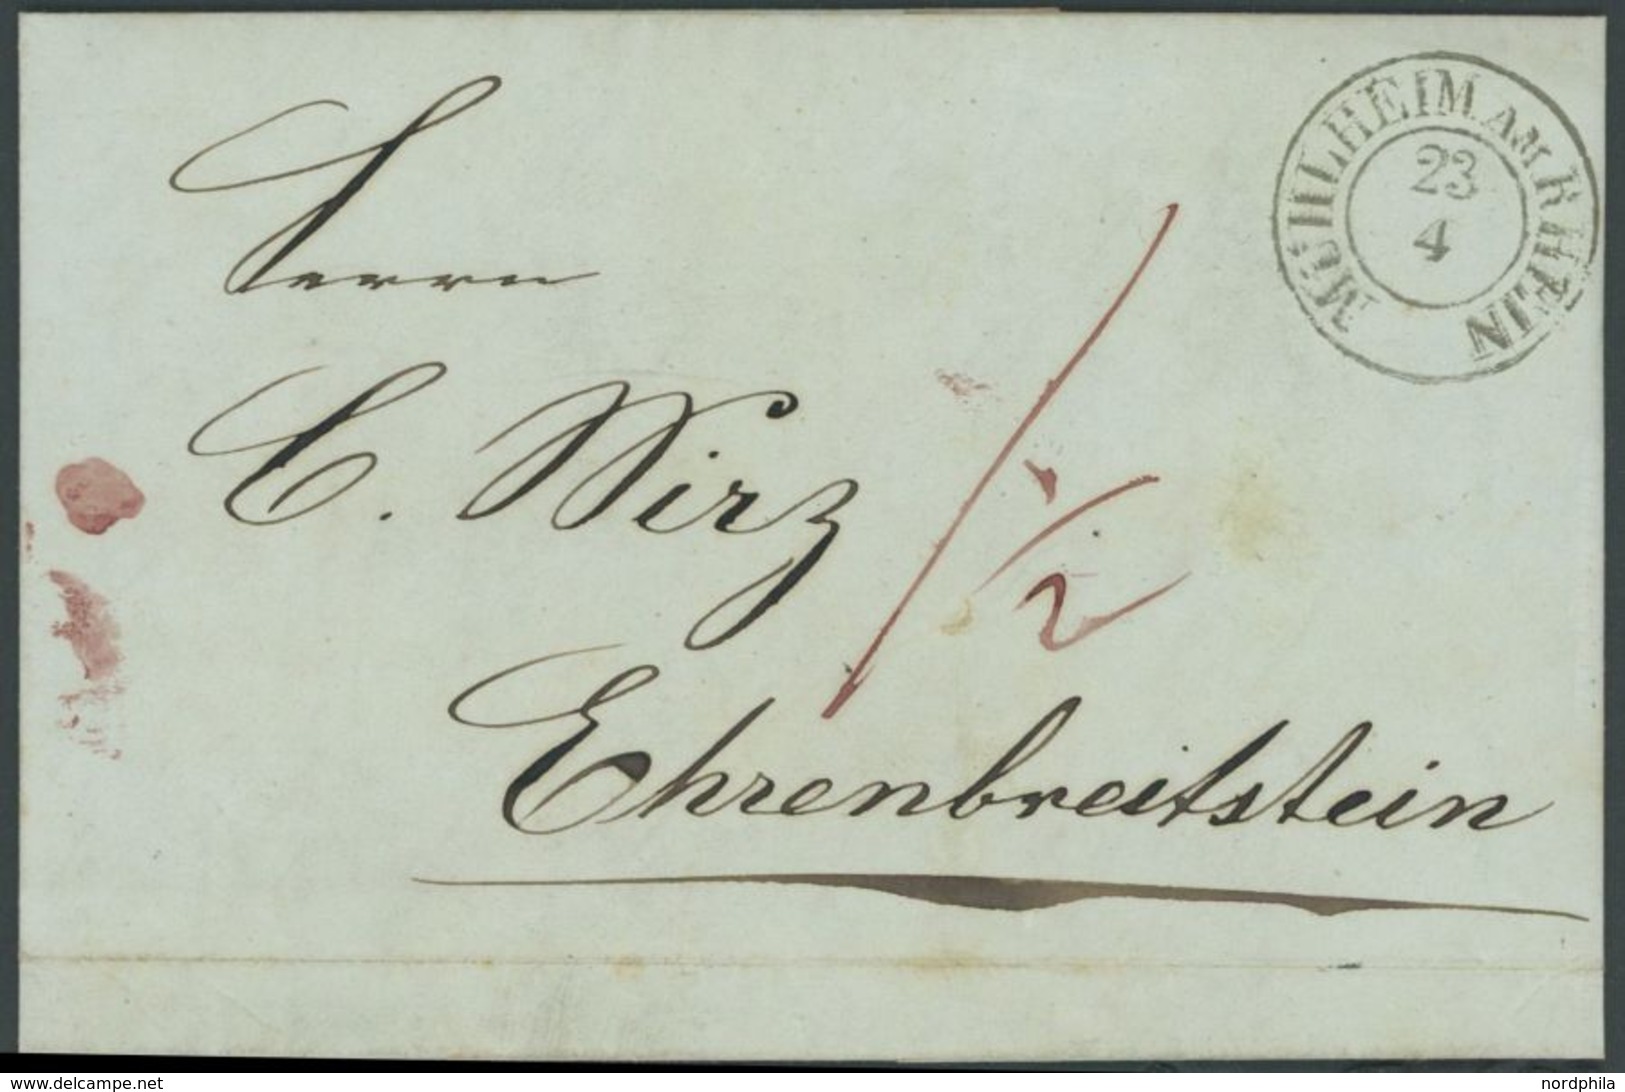 MÜHLHEIM AM RHEIN
23
4
Herrn
C. Wirz
1/2
Ehrenbreitstein
www.delcampe.net
nordphila